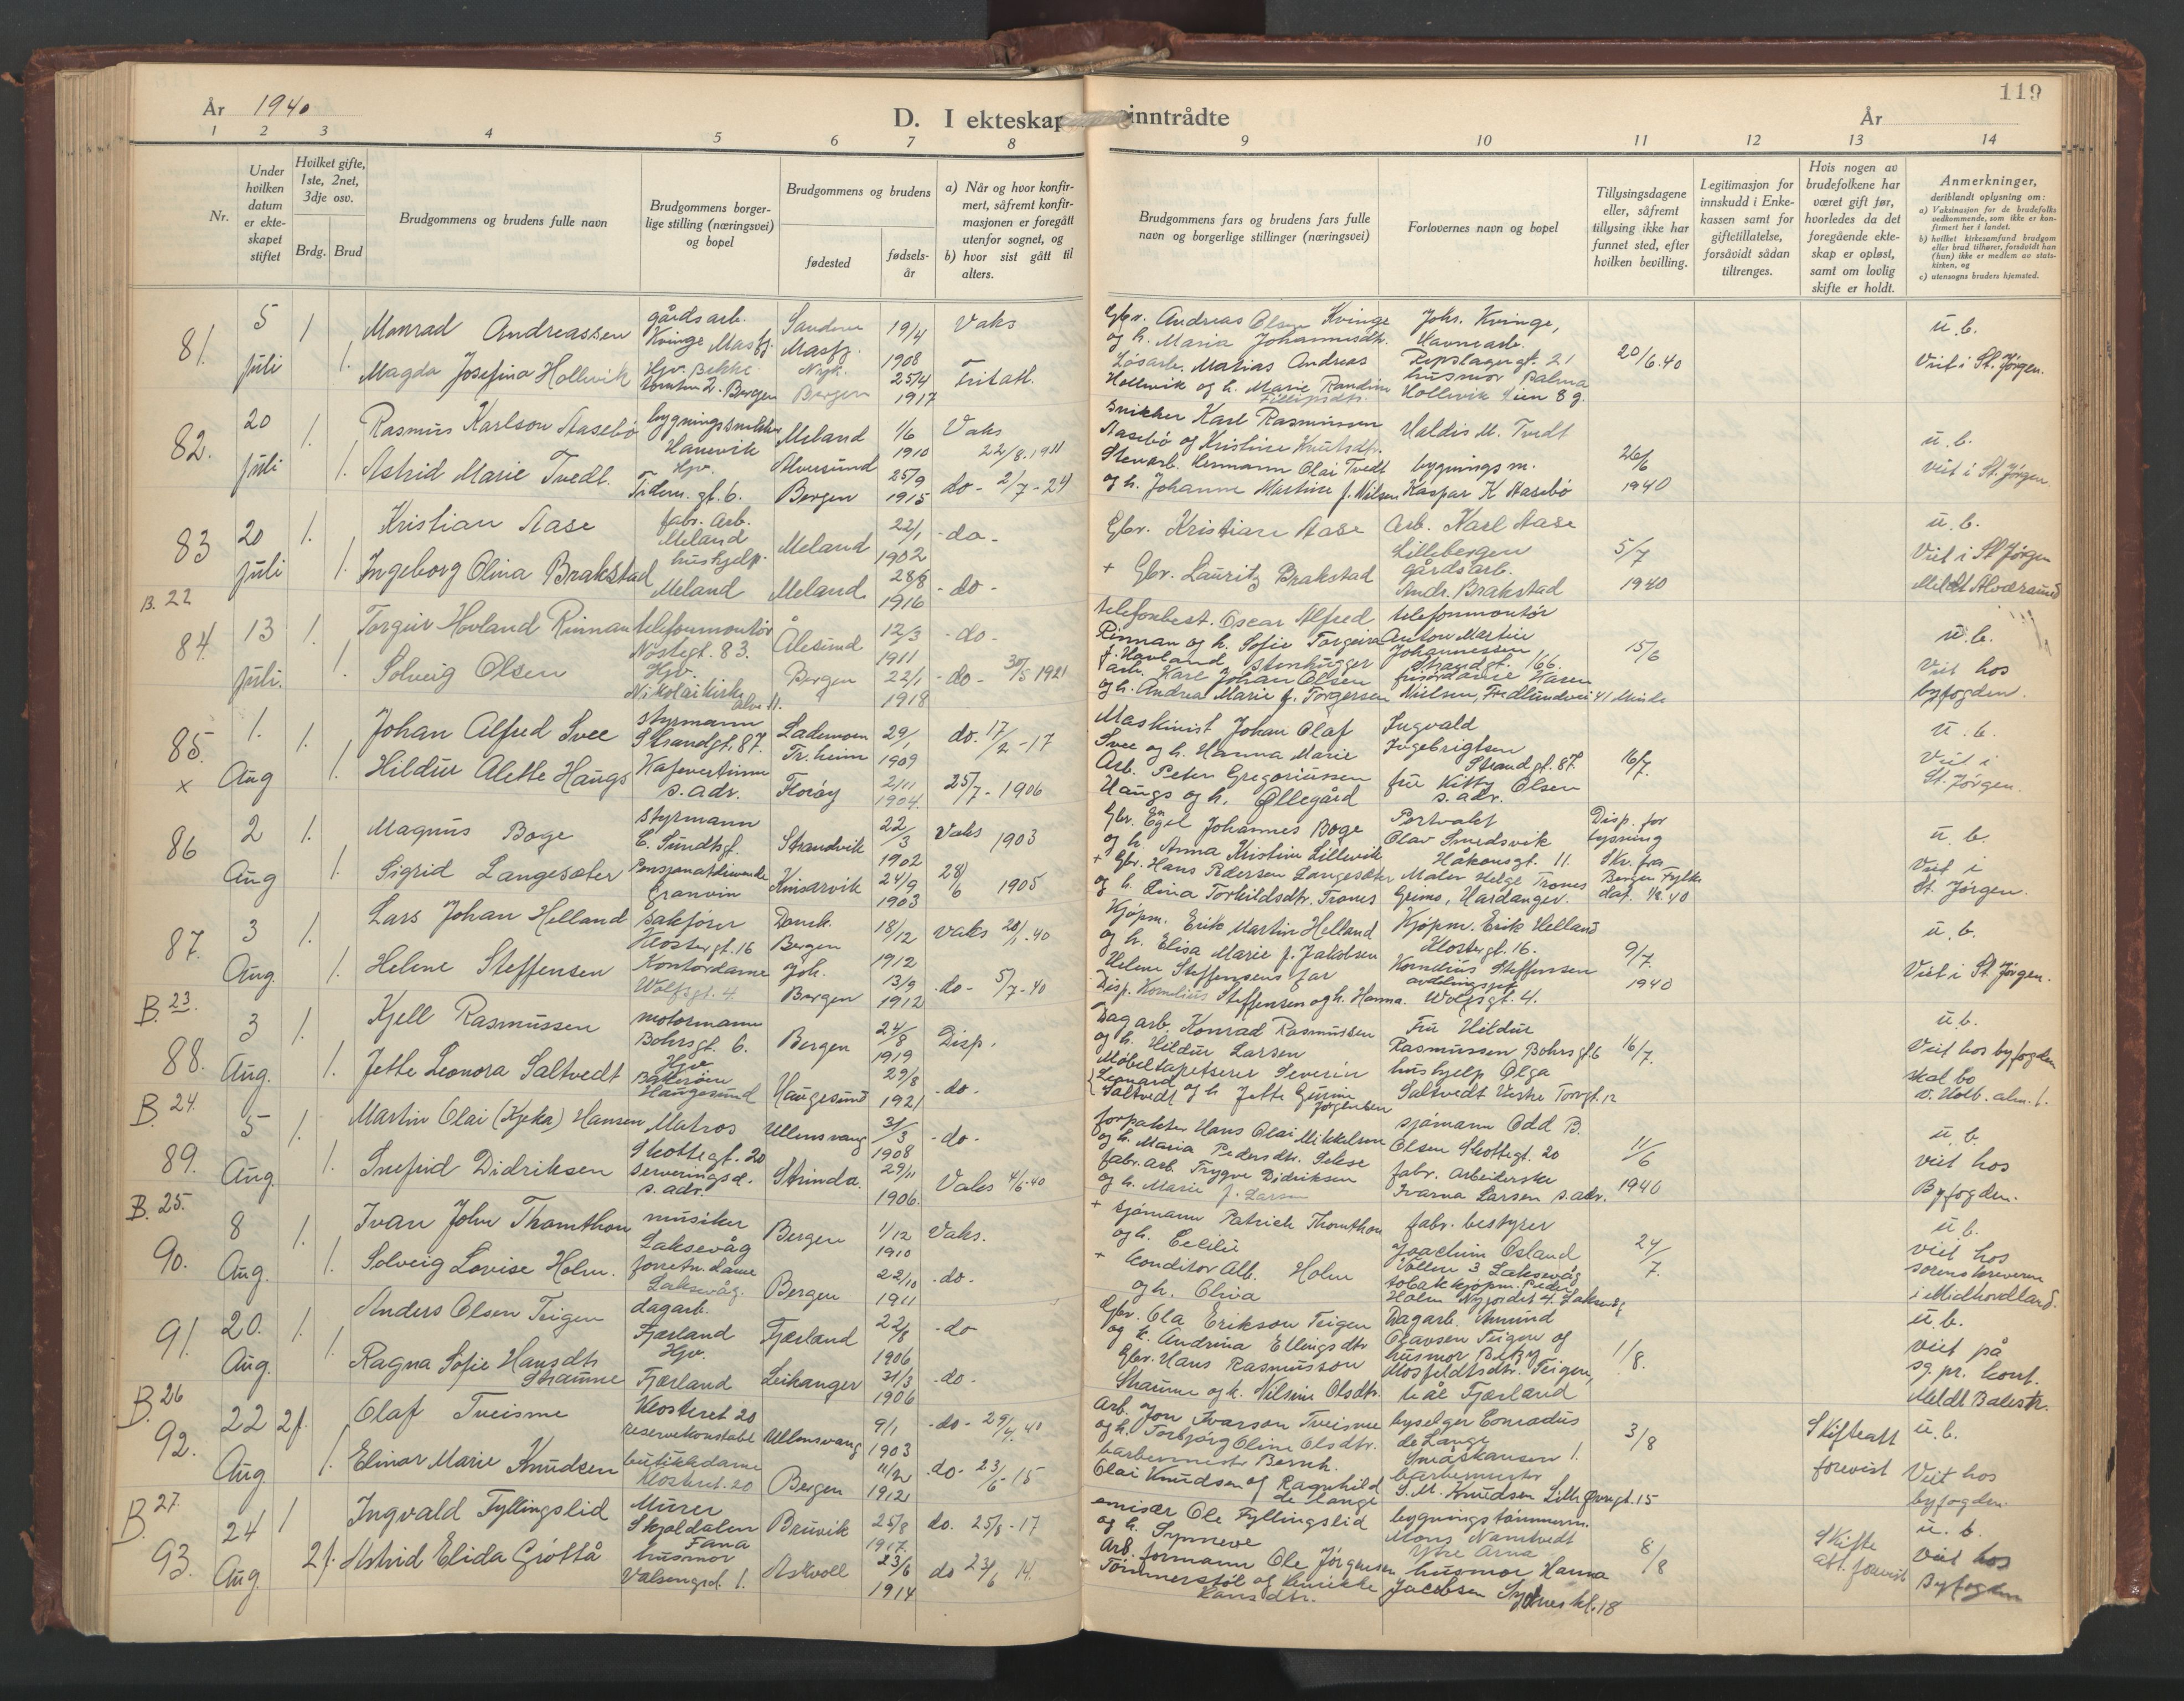 119
År 1940
D. I ekteskap inntrådte
År
1 2 3 4 5 6 7 8 9 10 11 12 13 14
Nr.
Under hvilken datum er ekteskapet stiftet
Hvilket gifte, 1ste, 2net, 3dje osv.
Brdg. Brud
Brudgommens og brudens fulle navn
Brudgommens borgerlige stilling (næringsvei) og bopel
Brudgommens og brudens
fødested
fødselsår
a) Når og hvor konfirmert, såfremt konfirmasjonen er foregått utenfor sognet, og
b) hvor sist gått til alters.
Brudgommens fars og brudens fars fulle navn og borgerlige stillinger (næringsvei)
Forlovernes navn og bopel
Tillysingsdagene eller, såfremt tillysing ikke har funnet sted, efter hvilken bevilling.
Legitimasjon for innskudd i Enkekassen samt for giftetillatelse, forsåvidt sådan tiltrenges.
Hvis nogen av brudefolkene har været gift før, hvorledes da det foregående ekteskap er opløst, samt om lovlig skifte er holdt.
Anmerkninger, deriblandt oplysning om:
a) Vaksinasjon for de brudefolks vedkommende, som ikke er konfirmert her i landet.
b) hvilket kirkesamfund brudgom eller brud tilhører, forsåvidt han (hun) ikke er medlem av statskirken, og
c) utensogns bruders hjemsted.
81. 5 juli 1 Monrad Andreassen gårdsarb. Kvinge Masfj. Masfj. 19/4 1908 Vaks
Gbr. Andreas Olsen Kvinge og h. Maria Johannesdtr. Johs. Kvinge, Havnearb. Repslagergt. 21 20/6.40 u.b. Viet i St. Jørgen.
1. Magda Josefina Hollevik Hjv. Bergen 25/4 1917
Løsarb. Matias Andreas Hollevik og h. Marie Randine husmor Palma Hollevik
82. 20 juli 1. Rasmus Karlson Aasebø bygningssnekker Hanevik Meland 1/6 1910 Vaks 22/8.1911
snikker Karl Rasmussen Aasebø og Kristine Knutsdtr. Valdis M. Tvedt 26/6 1940 u.b. viet i St. Jørgen
1. Astrid Marie Tvedt. Hjv. Tidem. gt. 6. Bergen 25/9 1915 do - 2/7 - 24
Stenarb. Hermann Olai Tvedt og h. Johanne Martine f. Nilsen bygningsm. Kaspar K Aasebø
83 20 juli 1. Kristian Aase fabr. Arb. Meland Meland 22/1 1902 - do -
Gbr. Kristian Aase Arb. Karl Aase Lillebergen 5/7 1940 u.b. Viet i St Jørgen
1. Ingeborg Olina Brakstad hushjelp. Meland Meland 28/8 1916 - do -
+ Gbr. Lauritz Brakstad gårdsarb. Andr. Brakstad
B. 22
84. 13 juli. 1. Torgeir Hovland Rinnan telefonmontør Nøstegt. 83. Ålesund 12/3 1911 - do -
telefonbest. Oscar Alfred Rinnan og h. Sofie Torgeira f. Hovland telefonmontør Anton Martin Johannessen Strandgt. 166. 15/6 u.b. Viet hos byfogden.
1. Solveig Olsen Hjv. Nikolaikirkealm. 11. Bergen 22/1 1918 - do - 30/5 1921
stenhugger arb. Karl Johan Olsen og h. Andrea Marie f. Torgersen Nielsen, Fredlundvei 41 Minde
85. x 1. Aug 1. Johan Alfred Svee styrmann Strandgt. 87. Lademoen Tr.heim 29/1 1909 do. 17/2 - 17
Maskinist Johan Olaf Svee og h. Hanna Marie Ingvald Ingebrigtsen Strandgt. 87. 16/7. u.b. Viet i St. Jørgen.
1. Hildur Alette Haugs Kafevertinne s. adr. Florøy 2/11 1904. 25/7 - 1906
Arb. Peter Gregoriussen Haugs og h. Øllegård fru Kitty Olsen s. adr.
86 2 Aug 1. Magnus Boge styrmann E. Sundtsgt. Strandvik 22/3 1902 Vaks 1903
Gbr. Egil Johannes Boge og h. Anna Kristine Lillevik Portvakt Olav Smedsvik Håkonsgt. 11. Disp. for lysning Skr. fra Bergen Fylke dat. 1/8.40 u.b. Viet i St. Jørgen.
1. Sigrid Langesæter Pensjonatdrivende Granvin Kinsarvik 24/9 1903 28/6 1905
+ Gbr. Hans Pedersen Langesæter og h. Lina Torkildsdtr. Trones Maler Helge Trones Grimo, Hardanger.
87. 3 Aug. 1. Lars Johan Helland sakfører Klostergt. 16 Domk. Bergen 18/12 1912 vaks 20/1.40
Kjøpm. Erik Martin Helland og h. Elisa Marie f. Jakobsen Kjøpm. Erik Helland Klostergt. 16. 9/7. 1940 u.b. Viet i St. Jørgen.
1. Helene Steffensen Kontordame Wolffsgt. 4. Joh. Bergen 13/9 1912 - do - 5/7 - 40
Helene Steffensens far Disp. Kornelius Steffensen og h. Hanna. Kornelius Steffensen Wolfsgt. 4.
B. 23.
88. 3 Aug. 1. Kjell Rasmussen motormann Bohrsgt. 6. Bergen 24/8 1919 Disp.
Dagarb. Konrad Rasmussen og h. Hildur Larsen Fru Hildur Rasmussen Bohrsgt. 6 16/7. u.b. Viet hos byfogden skal bo v. Holb. alm. 1.
1. Jette Leonora Saltvedt Hjv Haugesund Haugesund 29/8 1921 - do -
Møbeltapetserer Severin Leonard Saltvedt og h Jette Gurine Jørgensen hushjelp Olga Saltvedt Vestre Torvgt. 12
B. 24.
89. 5 Aug. 1. Martin Olai (Kjeka) Hansen Matros Skottegt. 20 Ullensvang 31/3 1908 - do -
forpakter Hans Olai Mikkelsen og h. Maria Pedersdtr. Sekse sjømann Odd B. Olsen Skottegt. 20 11/6 1940 u.b. viet hos Byfogden.
1. Snefrid Didriksen serveringsd. s. adr. Strinda. 29/11 1906. Vaks 4/6-40
fabr. arb. Trygve Didriksen og h. Marie f. Larsen fabr. Arbeiderske Ivarna Larsen s. adr.
B. 25.
90. 8 Aug. 1. Ivan John Thomthon musiker Laksevåg Bergen 1/12 1910 Vaks.
+ sjømann Patrick Thomthon og h. Cecilie fabr. bestyrer Joachim Osland Vollen 3 Laksevåg 24/7. u.b. viet hos sorenskriveren i Midhordland.
1. Solveig Lovise Holm. forretn. dame Laksevåg. Bergen 22/10 1911 - do -
+ Conditor Alb. Holm og h. Olivia tobakkkjøpm. Peder Holm Nygårdst. 4. Laksevåg
91. 20. Aug. 1. Anders Olsen Teigen dagarb. Fjærland Fjærland 22/8 1906 - do
Gbr. Ola Erikson Teigen og h. Andrina Ellingsdtr Dagarb. Amund Olavsen Teigen og 1/8. u.b. viet på sg. pr. kont. Meldt Balestr.
1. Ragna Sofie Hansdtr Skaume Hjv. Fjærland Leikanger 31/3 1906 - do -
Gbr. Hans Rasmusson Skaume og h. Nilsine Olsdtr. husmor Betzy Klosfeldtsdtr. Teigen, Fjærland
B. 26
92. 22 Aug 2f. Olaf Tveisme Klosteret 20 reservekonstabel Ullensvang 9/1 1903 - do - 29/4.40
Arb. Jon Ivarson Tveisme og h. Torbjørg Oline Olsdtr. byselger Conradus de Lange Småskansen 1. 3/8 Skifteatt forevist u.b. Viet hos byfogden.
1. Elinor Marie Knudsen butikkdame Klosteret. 20 Bergen 11/2 1912 do - 23/6 - 15
barbermester Bernh. Olai Knudsen og Ragnhild de Lange barbermester S. M. Knudsen Lille Øvregt. 15
B. 27.
93. 24 Aug. 1 Ingvald Fyllingslid Murer Skjoldalen Fana Bruvik 25/8 1917. do. 25/8 - 17
emisær Ole Fyllingslid og h. Synneve bygningstømmerm. Mons Namtvedt Ytre Arna 8/8 Skifte att. forevist u.b. Viet hos Byfogden
2f. Astrid Elida Grøttå husmor Valsengsd. 1. Askvoll 23/6 1914 do 23/6 14.
Arb. formann Ole Jørgensen Tømmerstøl og Henrikke Hansdtr. husmor Hanna Jacobsen Sydneskl. 18